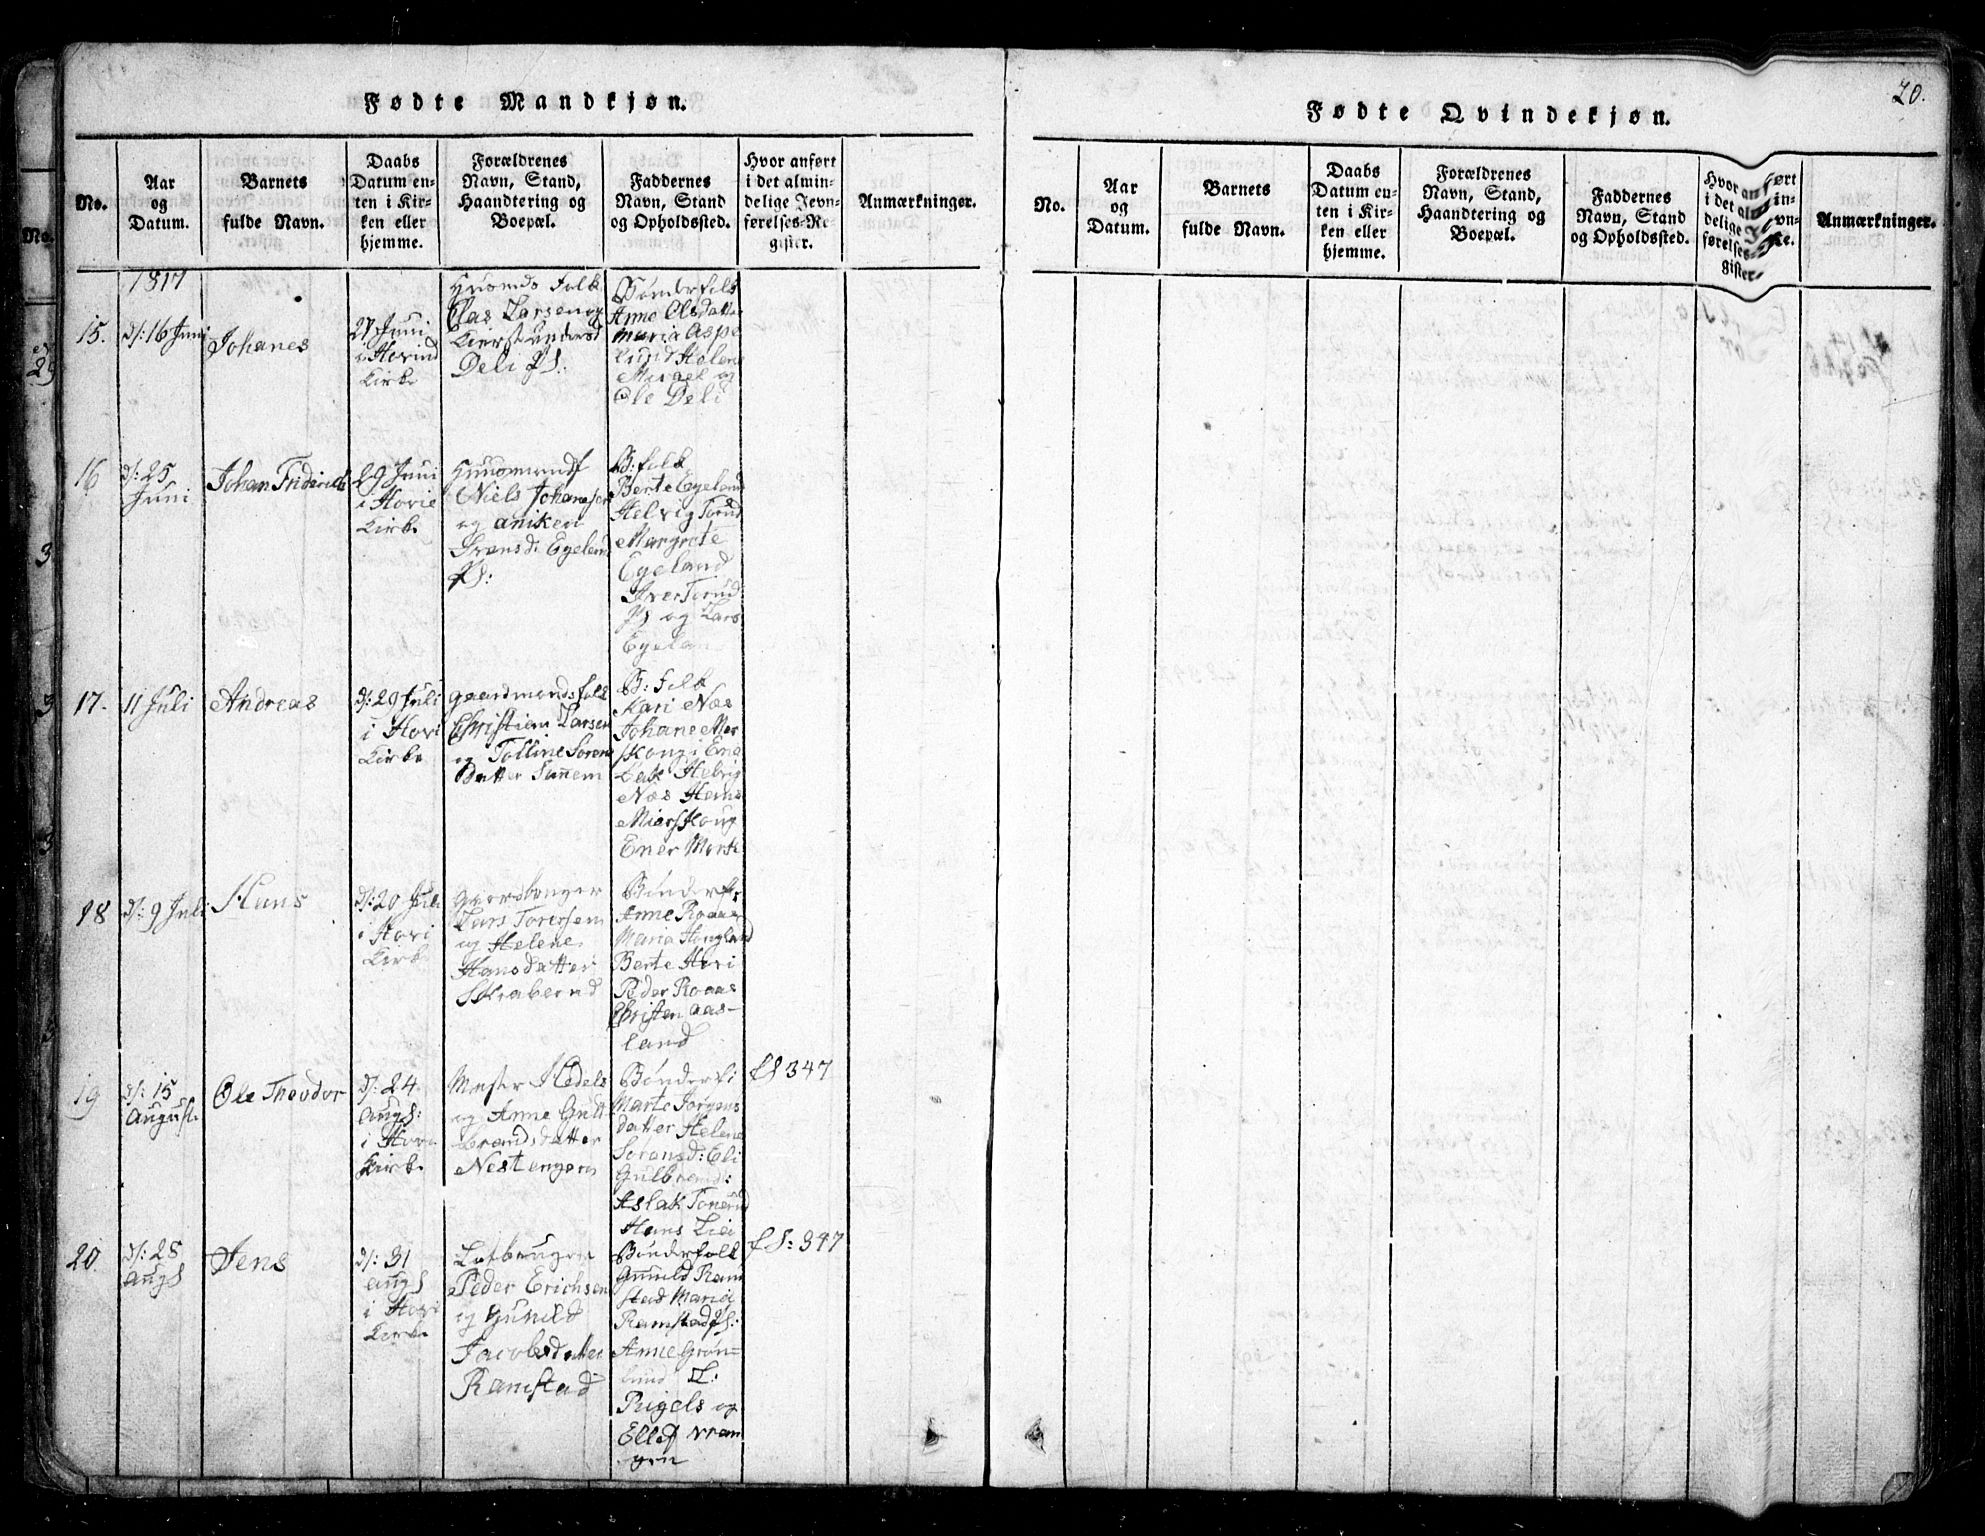 20.
Fødte Mandkjøn.
No.
Aar
og
Datum.
Barnets
fulde Navn.
Daabs
Datum en-
ten i Kir-
ken eller
hjemme.
Forældrenes
Navn, Stand,
Haandtering og
Boepæl.
Faddernes
Navn, Stand
og Opholdssted.
Hvor anført
i det almin-
delige Jevn-
førelses-Re-
gister.
Anmærkninger.
1817
15.
d: 16 Juni
Johanes
27 Juni
i Hovind
Kirke
Huusmds Folk
Olas Larsen og
Deli PS:
Bønderfolk
Anne Olsdatter
Maria Aspe
lund Helene
og
Ole Deli
16
d: 25
Juni
Johan Friderich
29 Juni
i Hovie
Kirke
Huusmandf
Niels Johansen
og Aniken
Egelund
PS:
B: folk
Berte Egeland
Helvig Torud
Margrete
Egeland
Iver Torud
PS og Lars
Egelan
17.
11 Juli
Andreas
d: 20 Juli
i Hovi
Kirke
gaardmandsfolk
Christian Larsen
og Tolline Soren
Datter Sunnem
B: folk
Kari Næs
Johane Mor
skoug i Ene
bak Helvig
Næs Hans
Miorskoug
Ener Mork
18
d: 9 Juli
Hans
d: 20 Juli
i Hovi
Kirke
Lars Torersen
og Helene
Hansdatter
Skraberud
Bønderf:
Anne Roaas
Maria Hougland
Berte Hovi
Peder Roaas
Christen Aas-
land
19
d: 15
August
Ole Theodor
d: 24
Augs:
i Hovi
Kirke
Mester Hedels
og Anne Gull
brandsdatter
Nestengen
Bønderf:
Marte Jørgens
datter Helene
Sorensd: Eli
Gulbrand:
Aslak Tonerud
Hans Lier
fS 347
20.
d: 28
Augs
Jens
d: 31
Augs
i Hovi
Kirke
Peder Erichsen
og Gunild
Jacobsdatter
Ramstad
Bønderfolk
Gunild Ram
stad Maria
Ramstad PS:
Anne Grøn-
lund L:
Rigels og
Ellef Vran
gen
fS: 347
Fødte Qvindekjøn.
No.
Aar
og
Datum.
Barnets
fulde Navn.
Daabs
Datum en-
ten i Kir-
ken eller
hjemme.
Forældrenes
Navn, Stand,
Haandtering og
Boepæl.
Faddernes
Navn, Stand
og Opholdssted.
Hvor anført
i det almin-
delige Jevn-
førelses-Re-
gister.
Anmærkninger.
No.